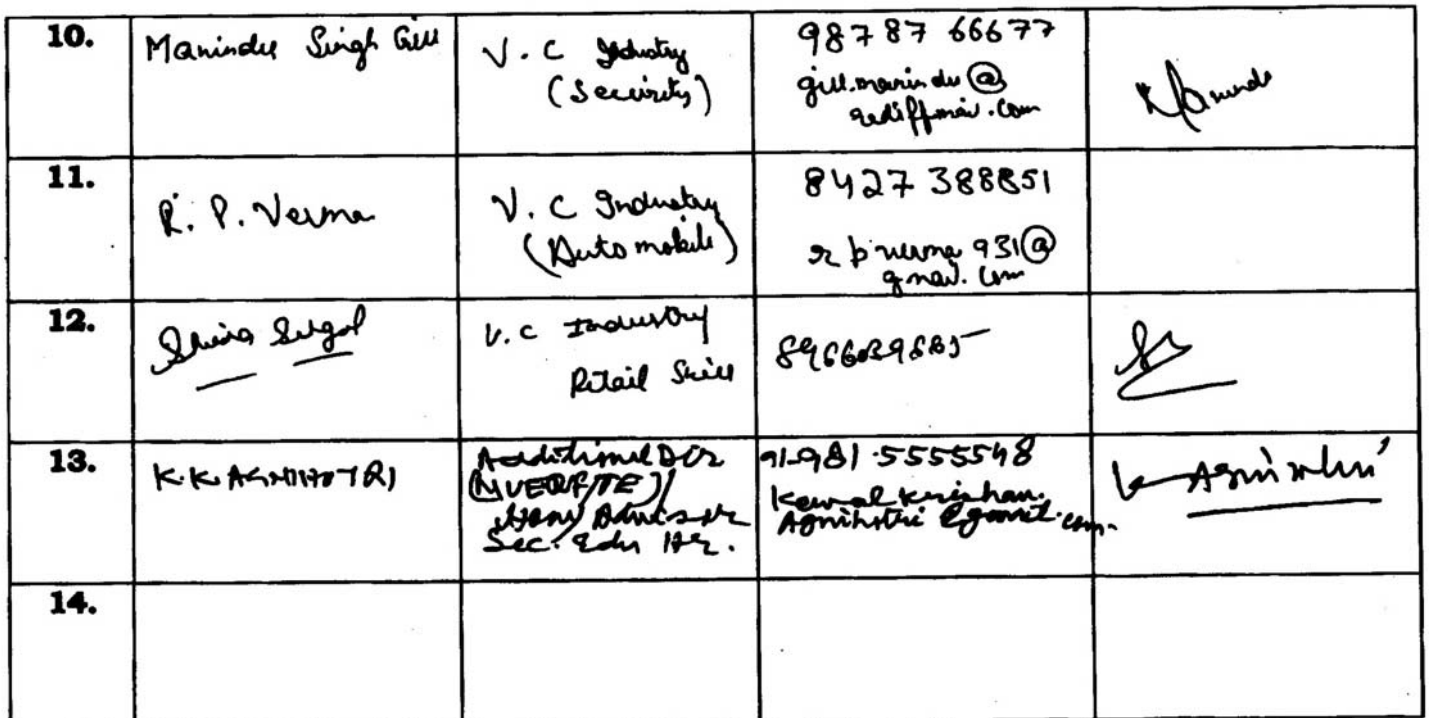 10.
Maninder Singh Gill
V. C Industry
(Security)
98787 66677
gill.maninder@
rediffmail.com
Maninde
11.
R. P. Verma
V. C Industry
(Automobile)
8427 388851
r p verma 931@
gmail. com
12.
V.C Industry
Retail Skill
13.
K.K. AGNIHOTRI
Additional Dir
Hony Advisor
Sec. Edu
91-981-5555548
Kewal Krishan.
Agnihotri @gmail.com.
Agnihotri
14.